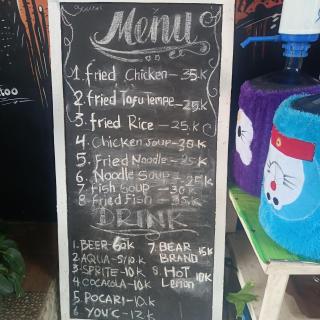 Menu
1. fried Chicken - 35.K
2. fried Tofu Tempe - 25K
3. fried Rice - 25.K
4. Chicken soup - 30 K
5. fried Noodle - 25K
6. Noodle Soup - 25K
7. fish Soup - 30K
8. fried Fish - 35K
DRINK
1. BEER - 60k
2. AQUA - 5/10.K
3. SPRITE - 10 K
4. COCACOLA - 10 K
5. POCARI - 10.K
6. YOU'C - 12 K
7. BEAR BRAND 15K
8 HOT Lemon 10K
too